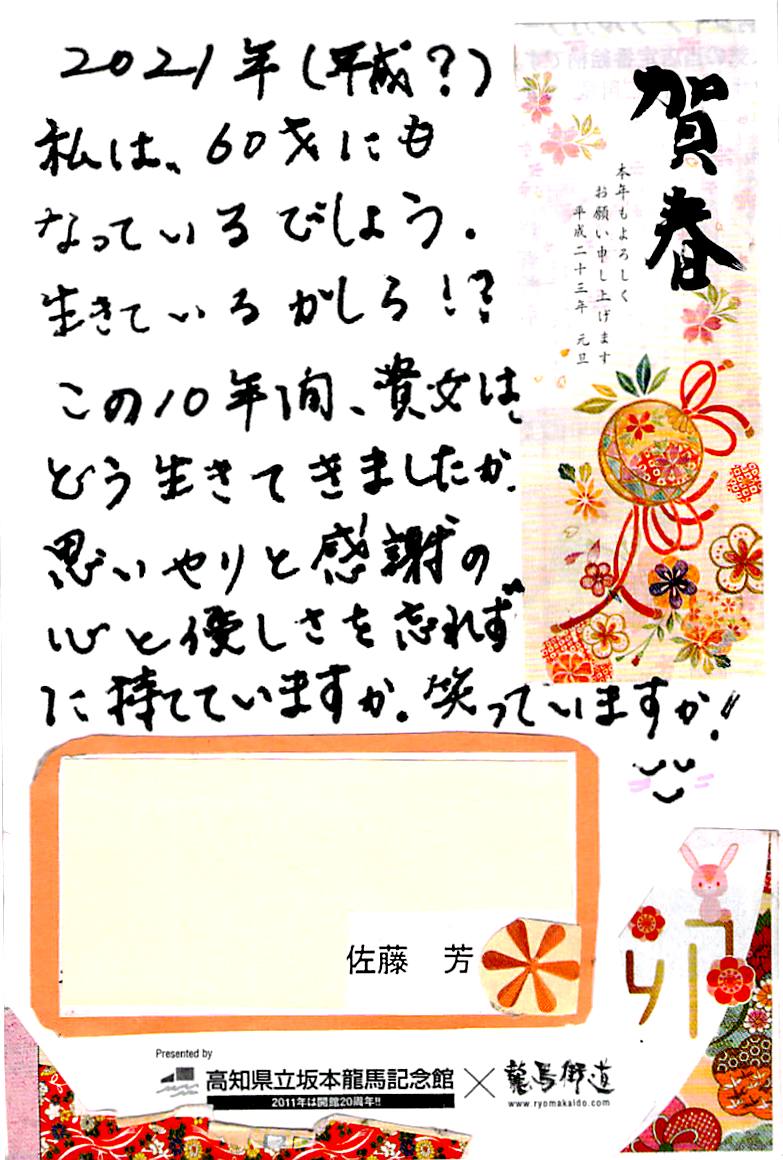 2021年(平成?)
私は、60才にも
なっているでしょう。
生きているかしら!?
この10年間、貴女は、
どう生きてきましたか。
思いやりと感謝の
心と優しさを忘れず
に持てていますか。笑っていますか!!
賀春
本年もよろしく
お願い申し上げます
平成二十三年 元旦
佐藤 芳
卯
Presented by
高知県立坂本龍馬記念館 × 龍馬街道
2011年は開館20周年!!
www.ryomakaido.com